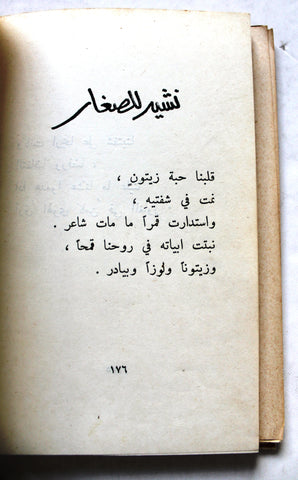 نشيد للصغار
قلبنا حبة زيتونٍ ،
نمت في شفتيهِ ،
واستدارت قمراً ما مات شاعر .
نبتت ابياته في روحنا قمحاً ،
وزيتوناً ولوزاً وبيادر .
١٧٦